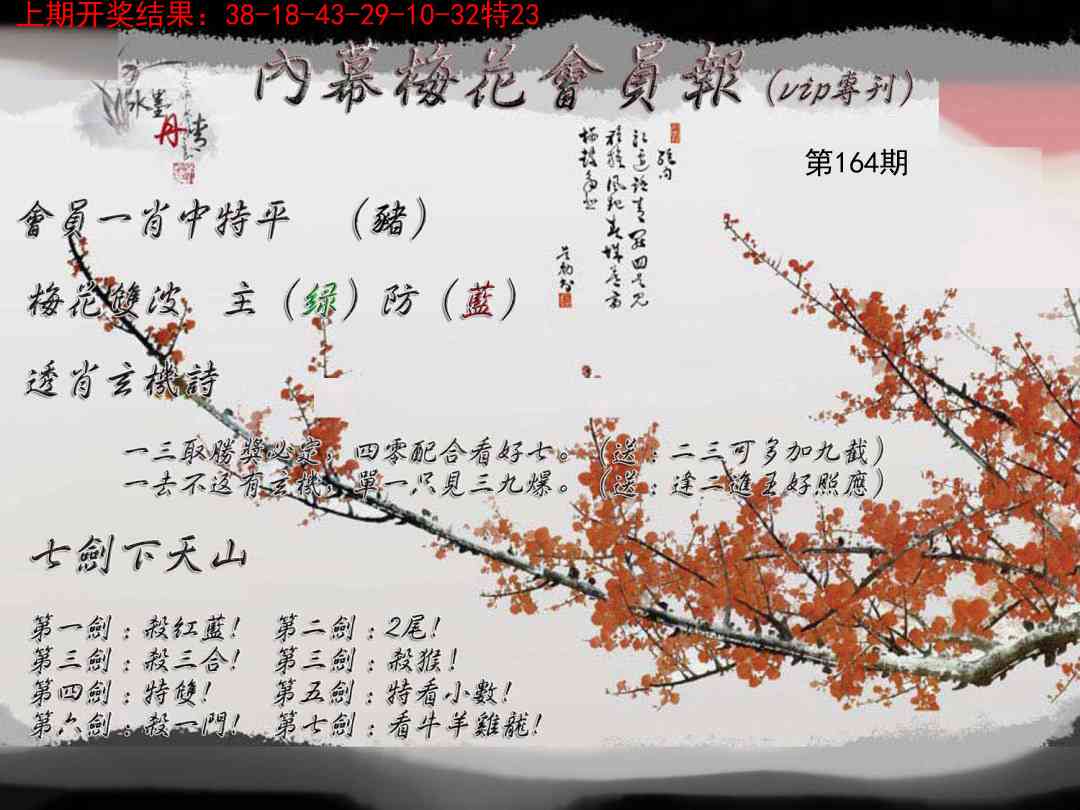 上期开奖结果：38-18-43-29-10-32特23
內幕梅花會員報（vip專刊）
水墨
丹青
第164期
會員一肖中特平 （豬）
梅花雙波 主（绿）防（藍）
透肖玄機詩
一三取勝獎必定，四零配合看好七。（送：二三可多加九截）
一去不返有玄機，單一只見三九爆。（送：逢二進王好照應）
七劍下天山
第一劍：殺紅藍！ 第二劍：2尾！
第三劍：殺三合！ 第三劍：殺猴！
第四劍：特雙！ 第五劍：特看小數！
第六劍：殺一門！ 第七劍：看牛羊雞龍！